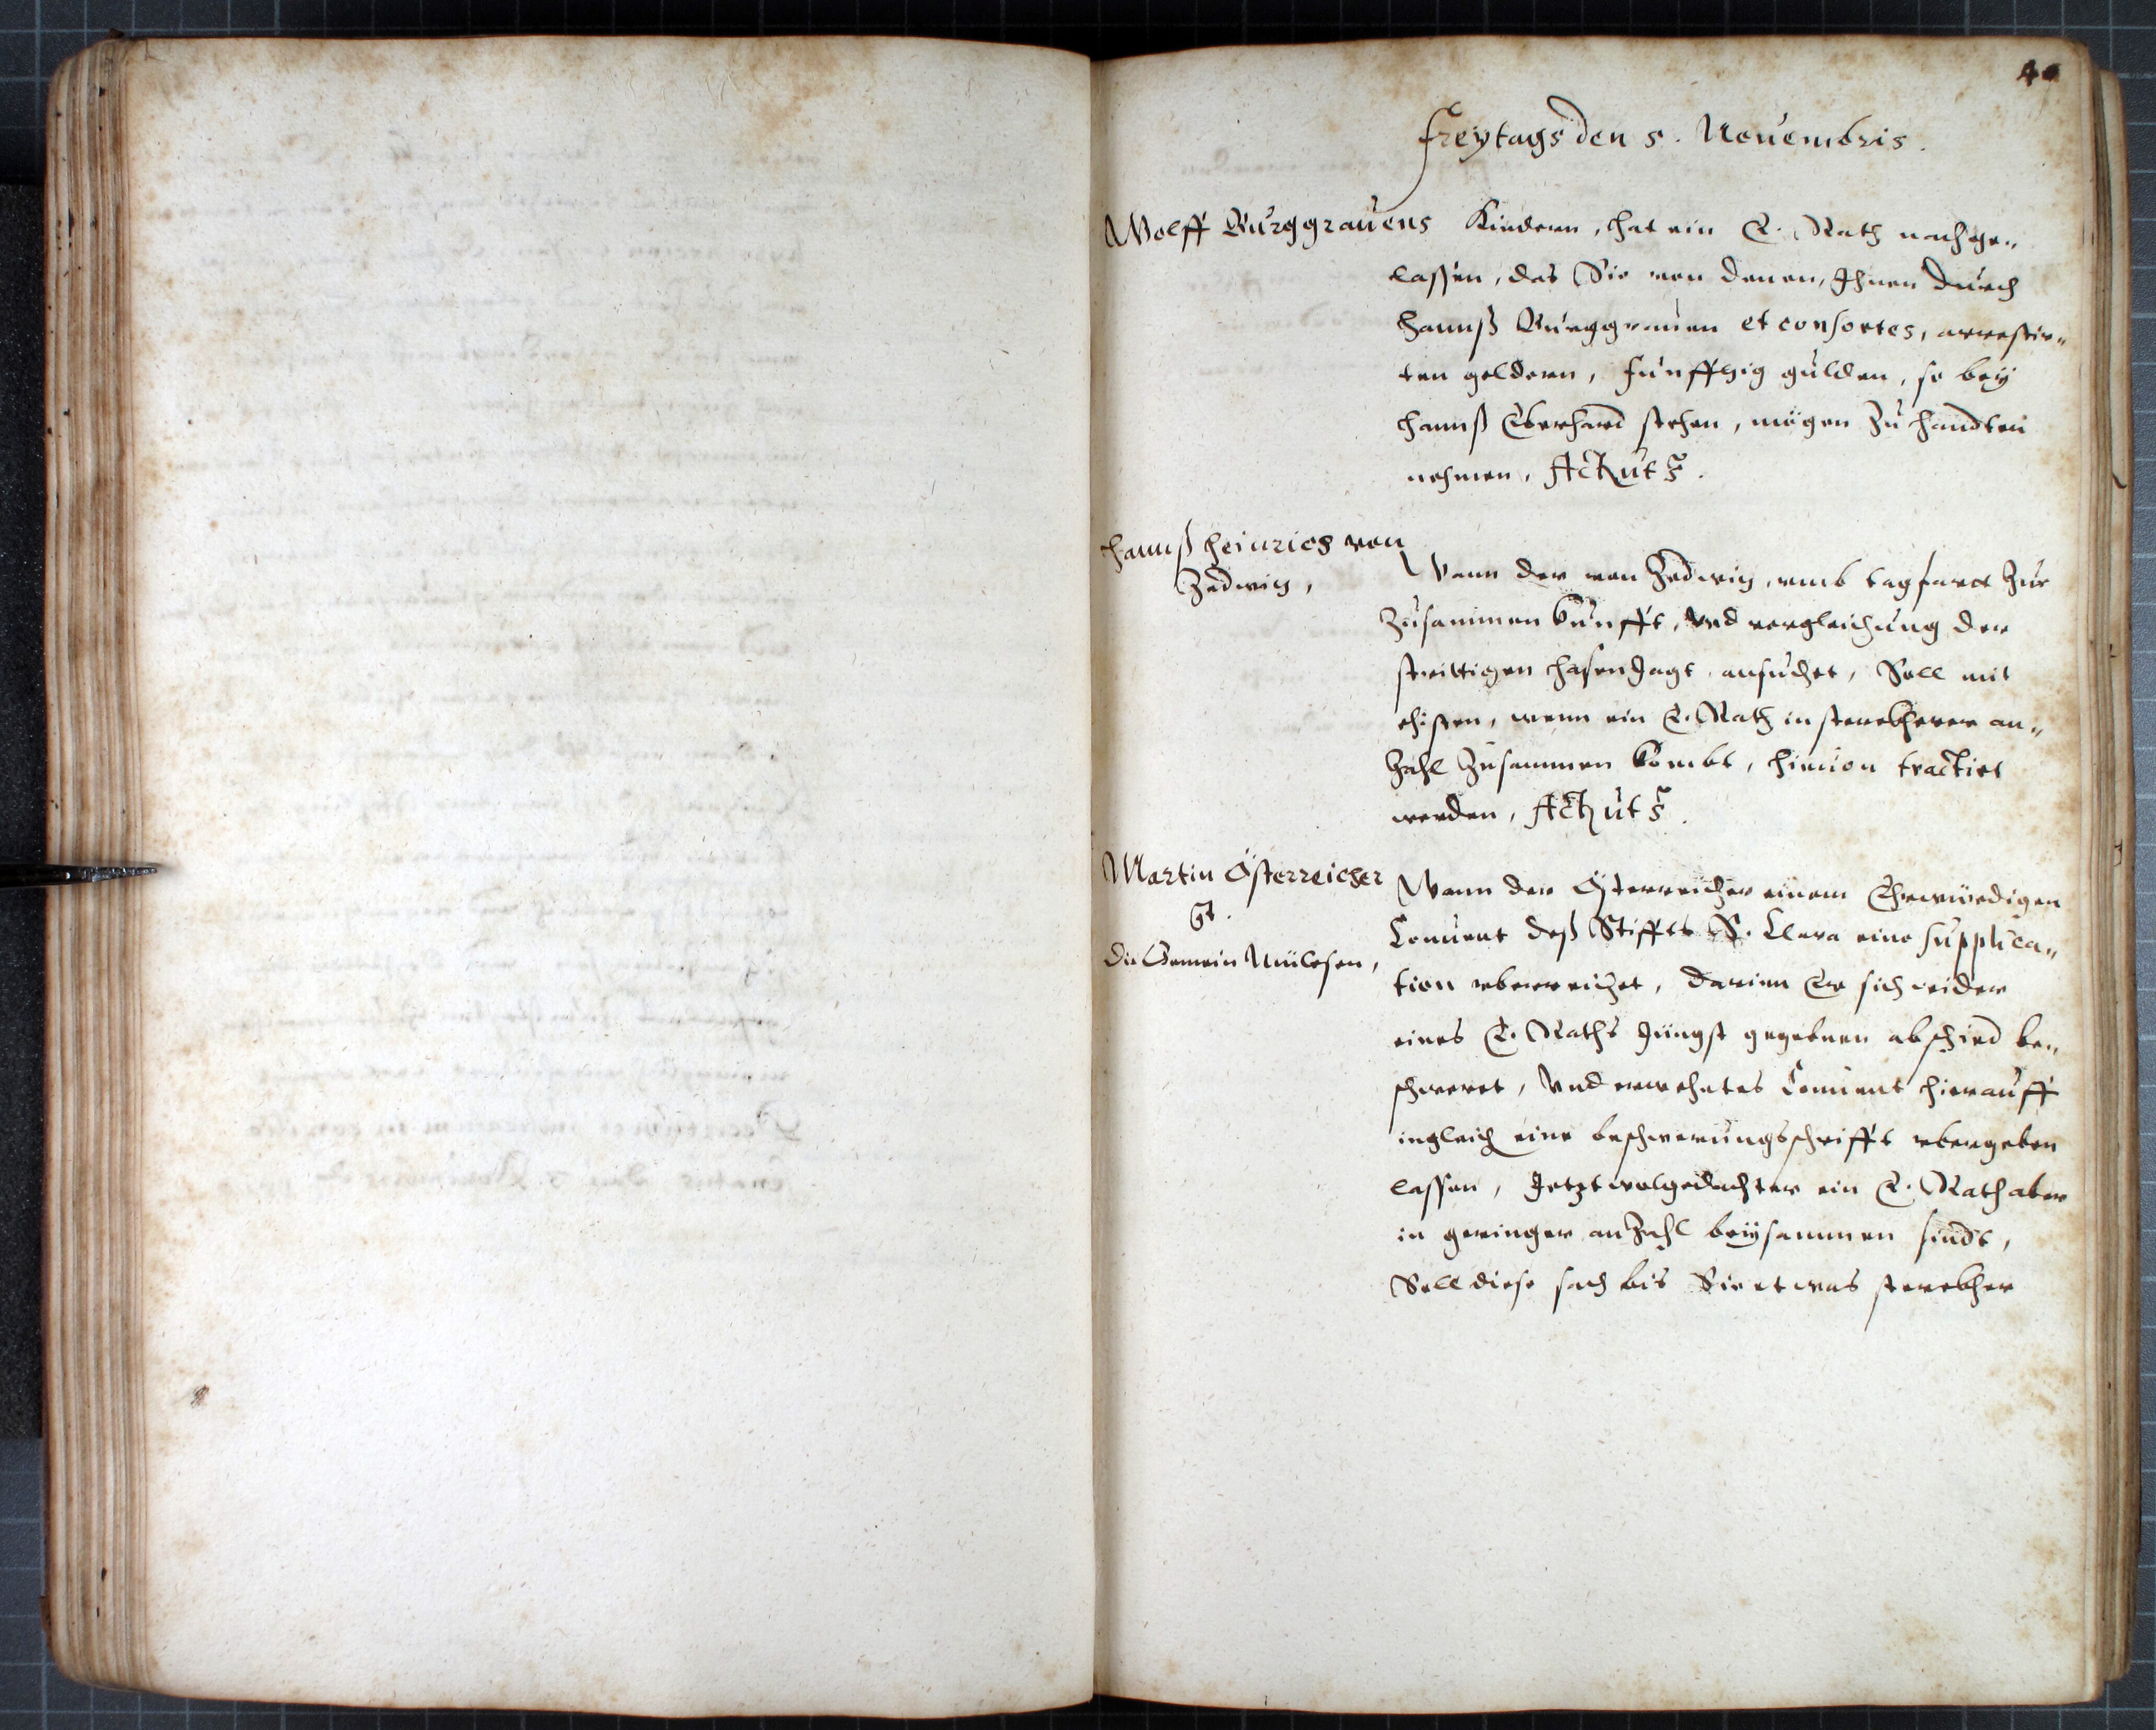 40
Freytags den 5. Nouembris.
Wolff Burggrauens Kindern, hat ein E. Rath nachge„
lassen, das Sie von denen, Ihnen durch
Hannß Burggrauen et consortes, arrestir„
ten geldern, Funffzig gulden, so bey
Hannß Eberhard stehen, mögen zu handten
nehmen, Act. ut s.
Hannß Heinrich von
Zedwitz,
Wann der von Zedwitz, vmb tagfaret zur
zusammenkunfft, vnd vergleichung der
strittigen hasenJagt, ansuchet, Soll mit
ehisten, wenn ein E. Rath in sterckherer an„
zahl zusammen kombt, hieuon tractirt
werden, Act. ut s.
Martin Österreicher
Ct.
die Gemein Mülesen,
Wann der Österreicher einem Ehrwürdigen
Conuent deß Stiffts S. Clara eine supplica„
tion vberreichet, darinn Er sich wider
eines E. Raths Jüngst gegebenen abschied be„
schweret, Vnd erwehntes Conuent hierauff
ingleich eine beschwerungsschrifft vbergeben
lassen, Jetzt wolgedachter ein E. Rath aber
in geringer anzahl beysammen sindt,
Soll diese sach bis Sie etwas sterckher